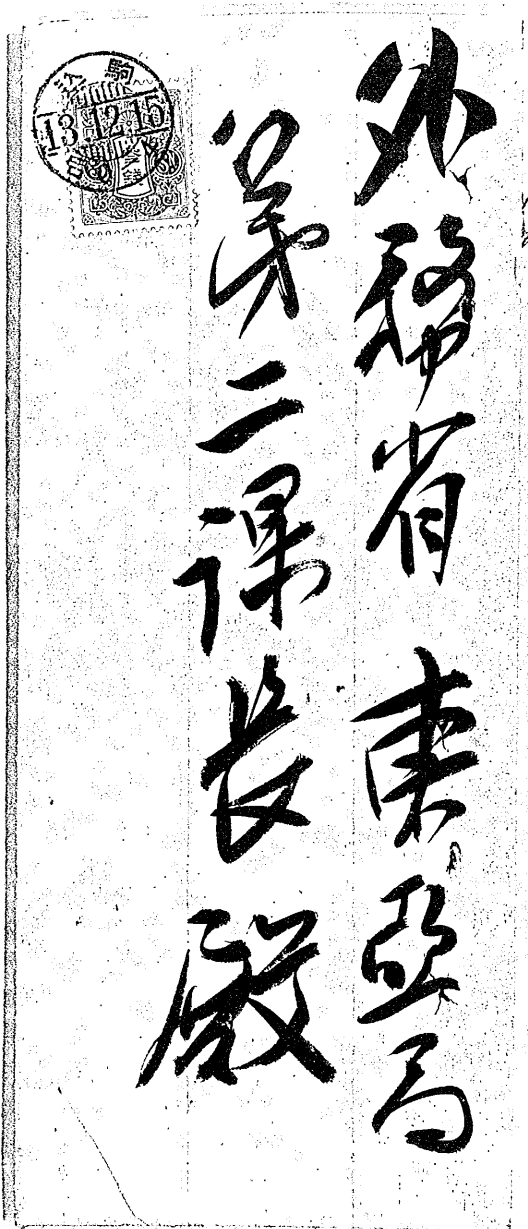 外務省東亞局
第二課長殿
駒込
13.12.15